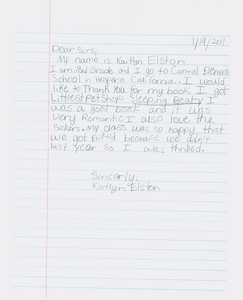 1/19/2011
Dear Sirs,
My name is Kaitlyn Elston
I am 2nd Grade and I go to Carmel Elementary
School in Hesperia California. I would
like to Thank You for my book I got
LittlestPetShop Sleeping Beaty I
was a good book and it was
very Romantic I also love the
Stikers. My class was so happy, that
we got because we didn't
last year So I was thrilled.
Sincarly,
Kaitlyn Elston